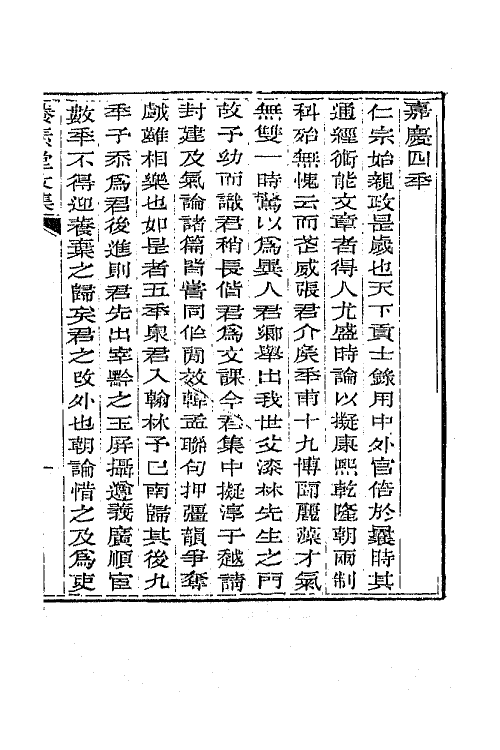 嘉慶四年
仁宗始親政是歲也天下貢士錄用中外官倍於曩時其
通經術能文章者得人尤盛時論以擬康熙乾隆朝兩制
科殆無愧云而武威張君介矦年甫十九博聞麗藻才氣
無雙一時驚以為異人君鄉舉出我世父漆林先生之門
故予幼而識君稍長偕君為文課今君集中擬淳于越請
封建及氣論諸篇皆嘗同作閒效韓孟聯句押彊韻爭奪
戲雖相樂也如是者五年泉君入翰林予已南歸其後九
年予忝為君後進則君先出宰黔之玉屏攝遵義廣順官
數年不得迎養棄之歸矣君之改外也朝論惜之及為吏
養素堂文集
一